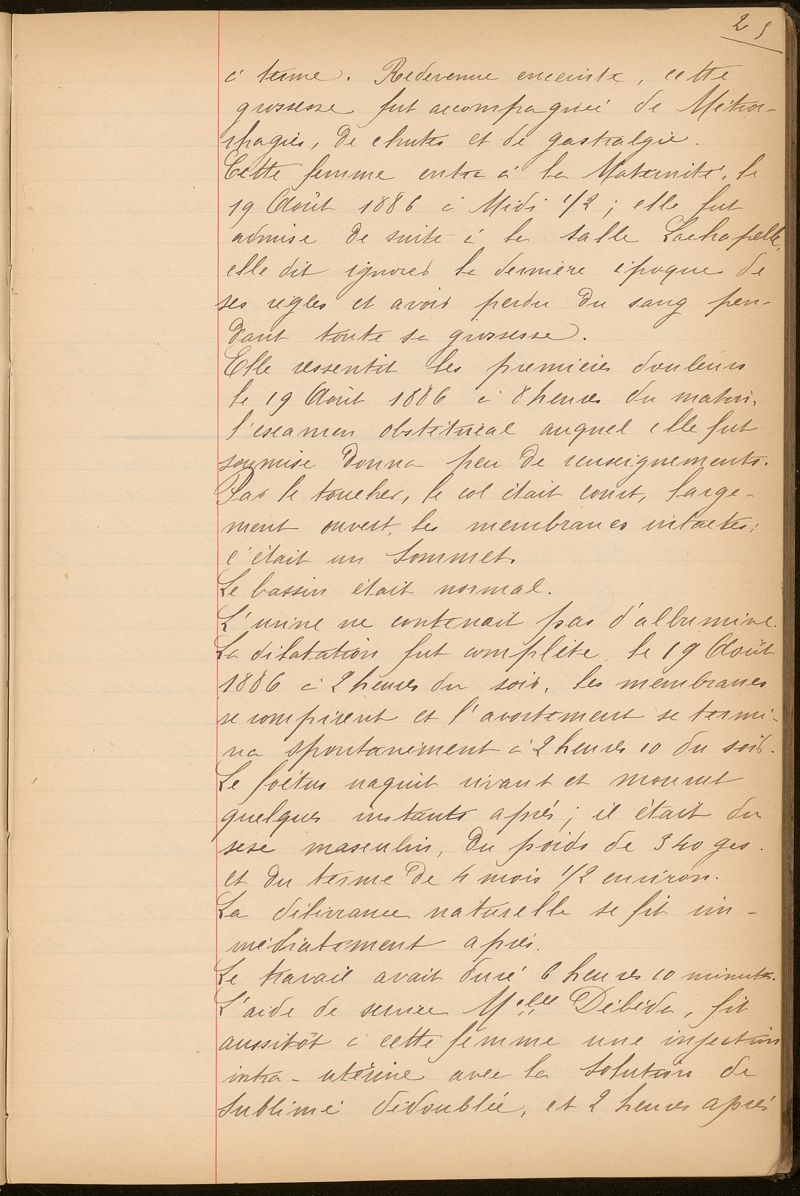 25
à terme. Redevenue enceinte, cette
grossesse fut accompagnée de Métror-
rhagies, de chutes et de gastralgie.
Cette femme entra à la Maternité, le
19 Août 1886 à Midi 1/2 ; elle fut
admise de suite à la salle Lachapelle,
elle dit ignorer la dernière époque de
ses règles et avoir perdu du sang pen-
dant toute sa grossesse.
Elle ressentit les premières douleurs
le 19 Août 1886 à 8 heures du matin,
l'examen obstétrical auquel elle fut
soumise donna peu de renseignements.
Par le toucher, le col était court, large-
ment ouvert, les membranes intactes ;
c'était un sommet.
Le bassin était normal.
L'urine ne contenait pas d'albumine.
La dilatation fut complète, le 19 Août
1886 à 2 heures du soir, les membranes
se rompirent et l'avortement se termi-
na spontanément à 2 heures 10 du soir.
Le foëtus naquit vivant et mourut
quelques instants après ; il était du
sexe masculin, du poids de 340 grs.
et du terme de 4 mois 1/2 environ.
La délivrance naturelle se fit im-
médiatement après.
Le travail avait duré 6 heures 10 minutes.
L'aide de service Melle Débéda, fit
aussitôt à cette femme une injection
intra-utérine avec la solution de
sublimé dédoublée, et 2 heures après